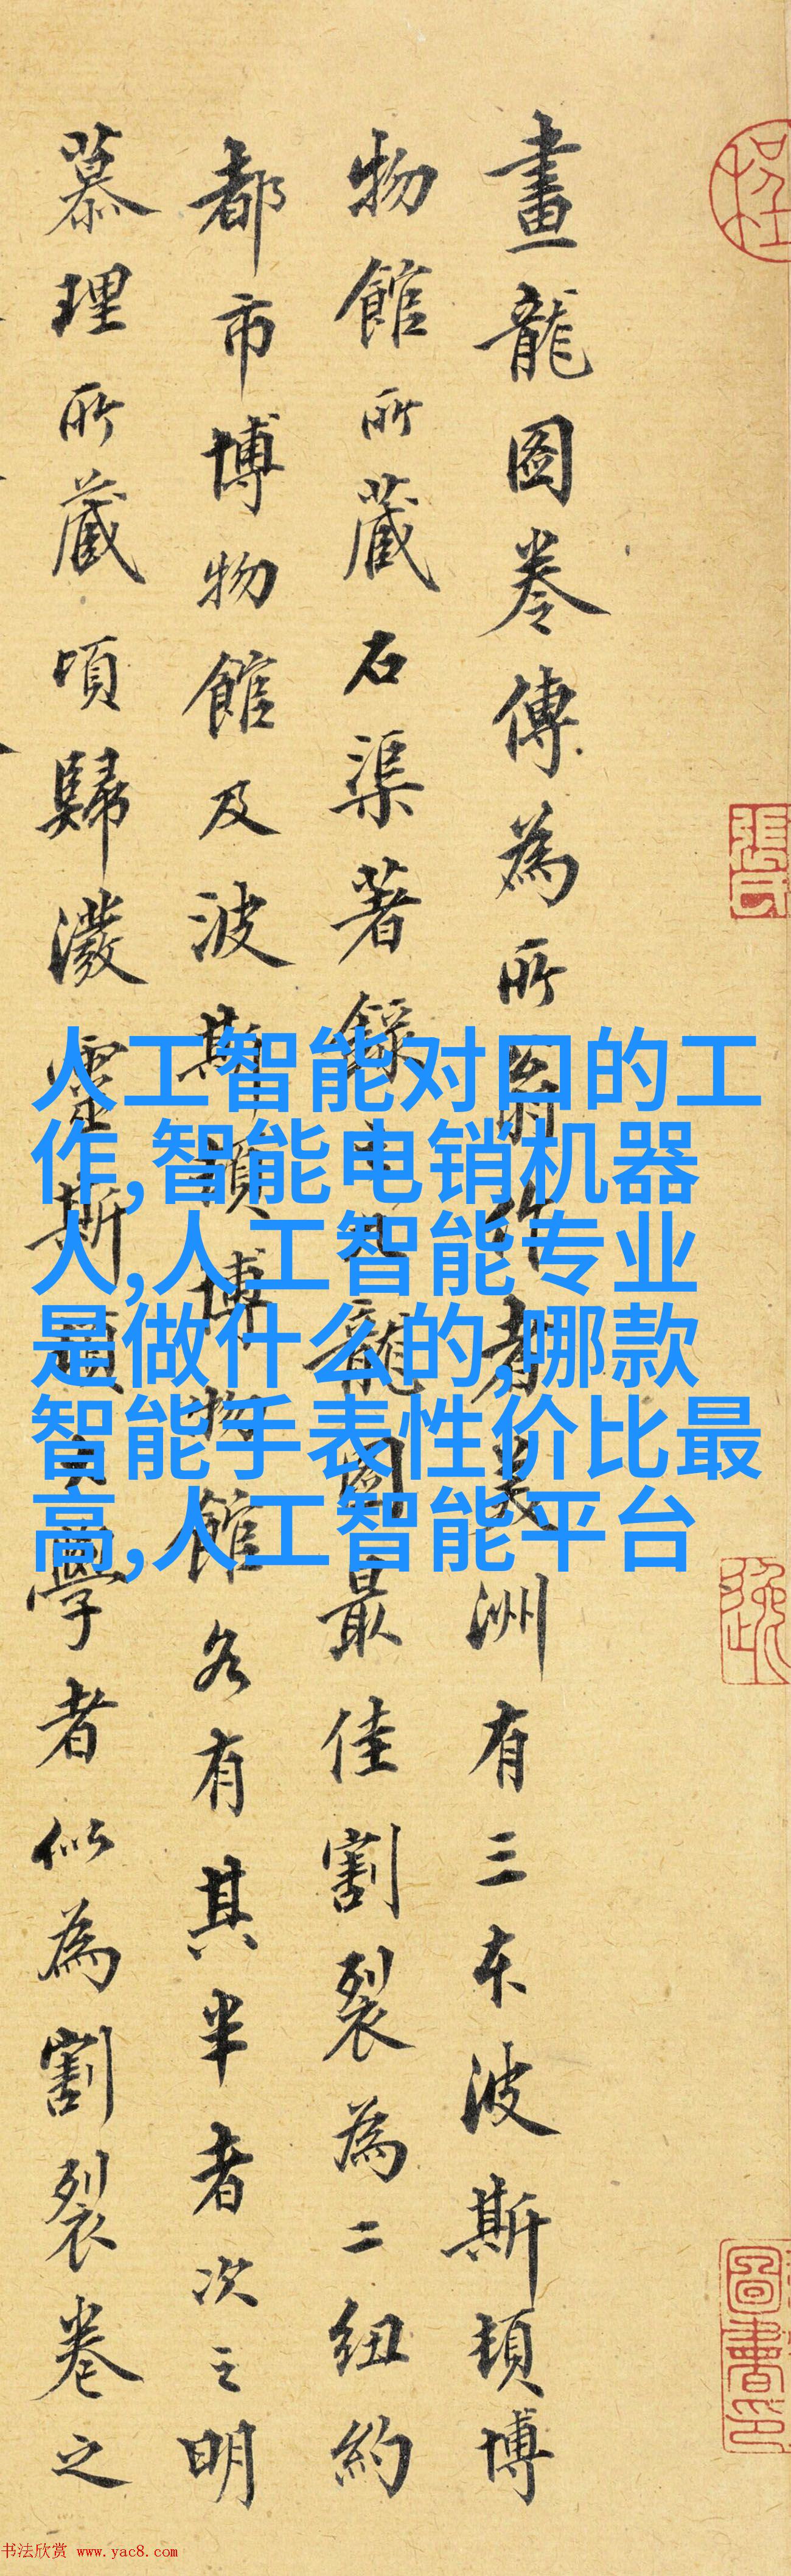 畫龍圖卷傳為所翁作者美洲有三本波斯頓博
物館所藏石渠著錄之九龍圖最佳割裂為二紐約
都市博物館及波斯頓博物館各有其半者次之明
慕理所藏頃歸潑靈斯頓大學者似為割裂卷之
人工智能对口的工
作,智能电销机器
人,人工智能专业
是做什么的,哪款
智能手表性价比最
高,人工智能平台
張氏
书法欣赏 www.yac8.com